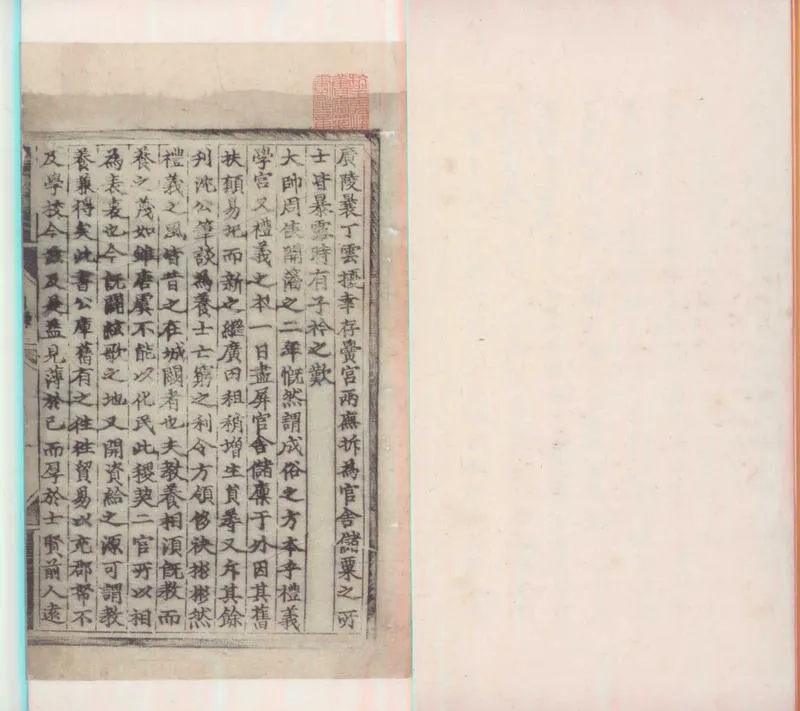 廣陵曩丁雲擾幸存黌宮兩廡拆為官舍儲粟之所
士皆暴露時有子衿之歎
大帥周侯開藩之二年慨然謂成俗之方本乎禮義
學官又禮義之本一日盡屏官舍儲廩于外因其舊
扶顛易圮而新之繼廣田租稍增生員尋又斥其餘
刊沈公筆談為養士亡窮之利令方領侈袂彬彬然
禮義之風皆昔之在城闕者也夫教養相湏既教而
養之茂如雖唐虞不能以化民此稷契二官所以相
為表裏也今既闢絃歌之地又開資給之源可謂教
養兼得矣此書公庫舊有之往往貿易以充郡帑不
及學校今茲及是益見薄於己而厚於士賢前人遠